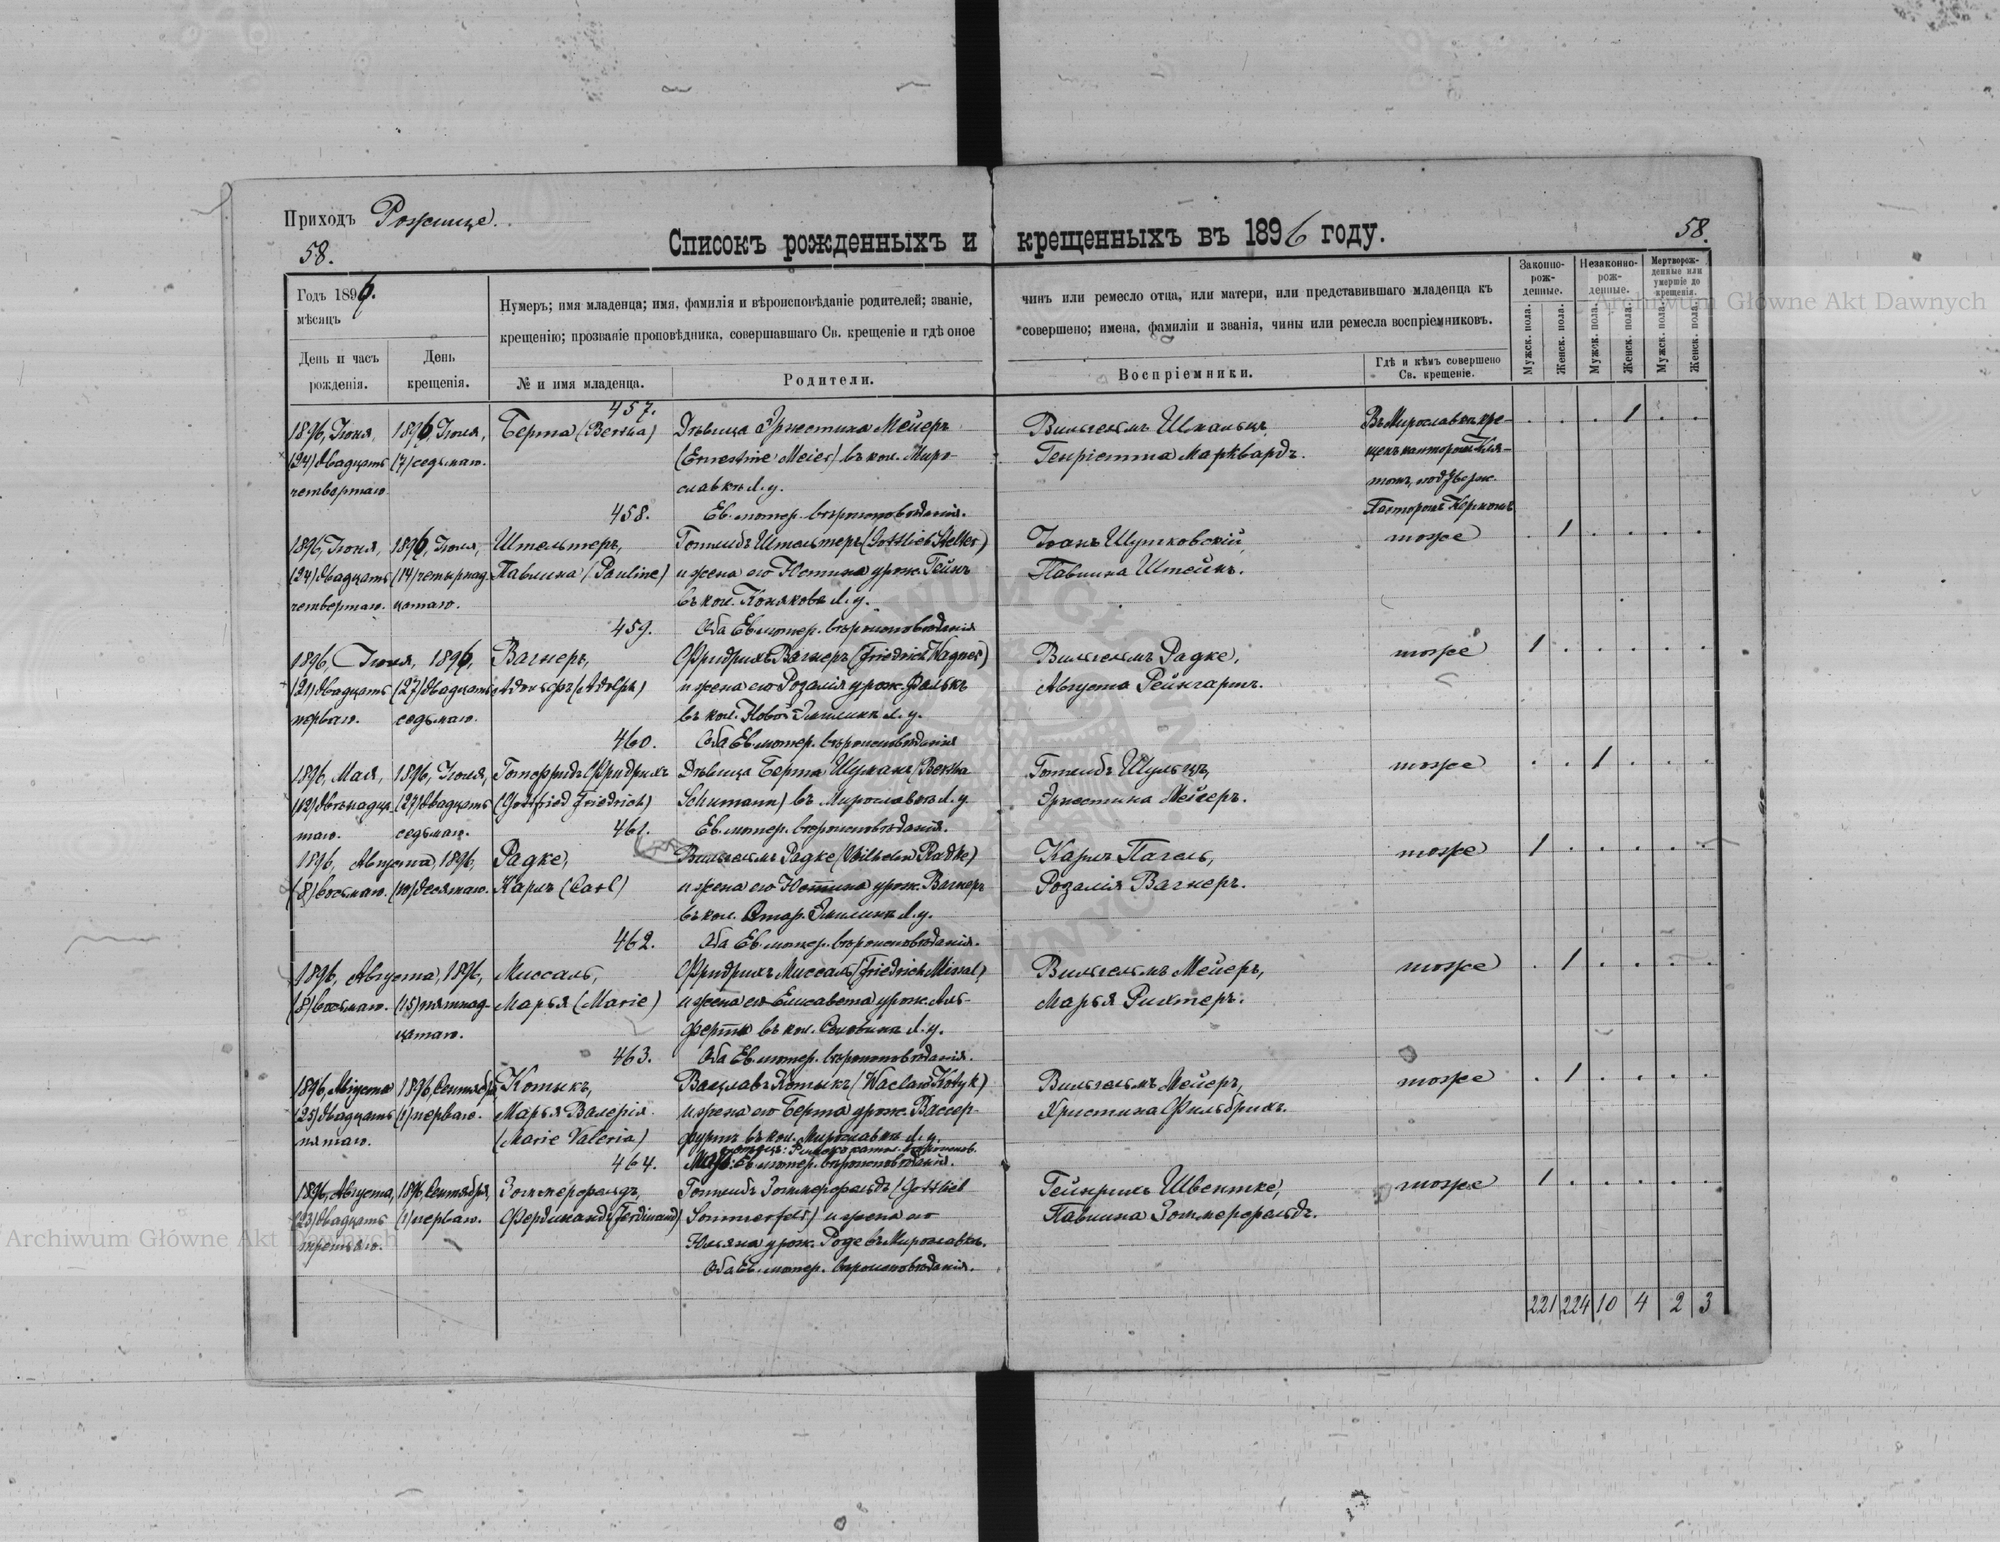 Приходъ Рожище.
58.
Списокъ рожденныхъ и крещенныхъ въ 1896 году.
58.
Годъ 1896.
мѣсяцъ
День и часъ рожденія.
День крещенія.
Нумеръ; имя младенца; имя, фамилія и вѣроисповѣданіе родителей; званіе, чинъ или ремесло отца, или матери, или представившаго младенца къ
крещенію; прозваніе проповѣдника, совершавшаго Св. крещеніе и гдѣ оное совершено; имена, фамиліи и званія, чины или ремесла воспріемниковъ.
№ и имя младенца.
Родители.
Воспріемники.
Гдѣ и кѣмъ совершено Св. крещеніе.
Законно-рож-денные.
Незаконно-рож-денные.
Мертворож-денные или умершіе до крещенія.
Мужск. пола.
Женск. пола.
Мужск. пола.
Женск. пола.
Мужск. пола.
Женск. пола.
457.
1896, Іюня, 1896, Іюля, Берта (Bertha) Дѣвица Эрнестина Мейеръ Вильгельмъ Шмальцъ, Въ Мирославкѣ кре- . . . 1 . .
(24) двадцать (7) седьмаго. (Ernestine Meier) въ кол. Миро- Генріетта Марквардъ. щенъ канторомъ
четвертаго славкѣ Л. у.
458. Ев. лютер. вѣроисповѣданія. Пасторомъ Керномъ
1896, Іюня, 1896, Іюля, Штельтеръ, Готлибъ Штельтеръ (Gottlieb Stelter) Іоанъ Шутковскій, тоже . 1 . . . .
(24) двадцать (14) четырнад. Павлина (Pauline) и жена его Юстина урож. Гейнъ Павлина Штейнъ.
четвертаго. цатаго. въ кол. Коняковѣ Л. у.
459. Оба Ев. лютер. вѣроисповѣданія
1896, Іюня, 1896, Вагнеръ, Фридрихъ Вагнеръ (Friedrich Wagner) Вильгельмъ Радке, тоже 1 . . . . .
(21) двадцать (27) двадцать Адольфъ (Adolph) и жена его Розалія урож. Фалькъ Августа Рейнгартъ.
перваго. седьмаго. въ кол. Новой Эмилинъ Л. у.
460. Оба Ев. лютер. вѣроисповѣданія
1896, Мая, 1896, Іюля, Готфридъ Фридрихъ Дѣвица Берта Шуманъ (Bertha Готлибъ Шульцъ, тоже . . 1 . . .
(12) двѣнадца (27) двадцать (Gottfried Friedrich) Schumann) въ Мирославкѣ Л. у. Эрнестина Мейеръ.
таго. седьмаго. 461. Ев. лютер. вѣроисповѣданія.
1896, Августа 1896, Радке, Вильгельмъ Радке (Wilhelm Radke) Карлъ Пагель, тоже 1 . . . . .
(8) восьмаго. (10) десятаго. Карлъ (Carl) и жена его Юстина урож. Вагнеръ Розалія Вагнеръ.
въ кол. Стар. Эмилинъ Л. у.
462. Оба Ев. лютер. вѣроисповѣданія.
1896, Августа, 1896, Миссаль, Фридрихъ Миссаль (Friedrich Missal) Вильгельмъ Мейеръ, тоже . 1 . . . .
(8) восьмаго. (15) пятнад- Марья (Marie) и жена его Елисавета урож. Аль- Марья Рихтеръ.
цатаго. въ кол. Л. у.
463. Оба Ев. лютер. вѣроисповѣданія.
1896, Августа 1896, Сентября, Котыкъ, Вацлавъ Котыкъ (Waclaw Kotyk) Вильгельмъ Мейеръ, тоже . 1 . . . .
(25) двадцать (1) перваго. Марья Валерія и жена его Берта урож. Вассер- Христина Фильбрихъ.
пятаго. (Marie Valeria) фуртъ въ кол. Мирославкѣ Л. у.
отецъ: Римско катол. вѣроиспов.
464. Мать: Ев. лютер. вѣроисповѣданія.
1896, Августа, 1896, Сентября, Зоммерфельдъ, Готлибъ Зоммерфельдъ (Gottlieb Гейнрихъ Швентке, тоже 1 . . . . .
(23) двадцать (1) перваго. Фердинандъ (Ferdinand) Sommerfeld) и жена его Павлина Зоммерфельдъ.
третьяго. Юльяна урож. Роде въ Мирославкѣ.
Оба Ев. лютер. вѣроисповѣданія.
221 224 10 4 2 3
Archiwum Główne Akt Dawnych
Archiwum Główne Akt Dawnych